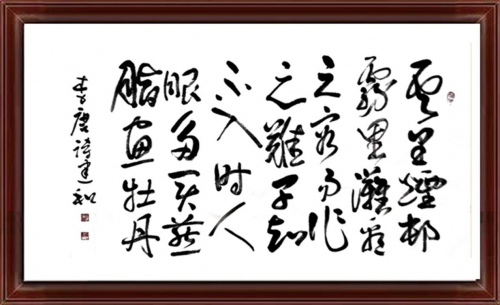 雲里煙邨
霧里灘看
之容易作
之難早知
不入时人
眼多買燕
脂画牡丹
李唐詩建和